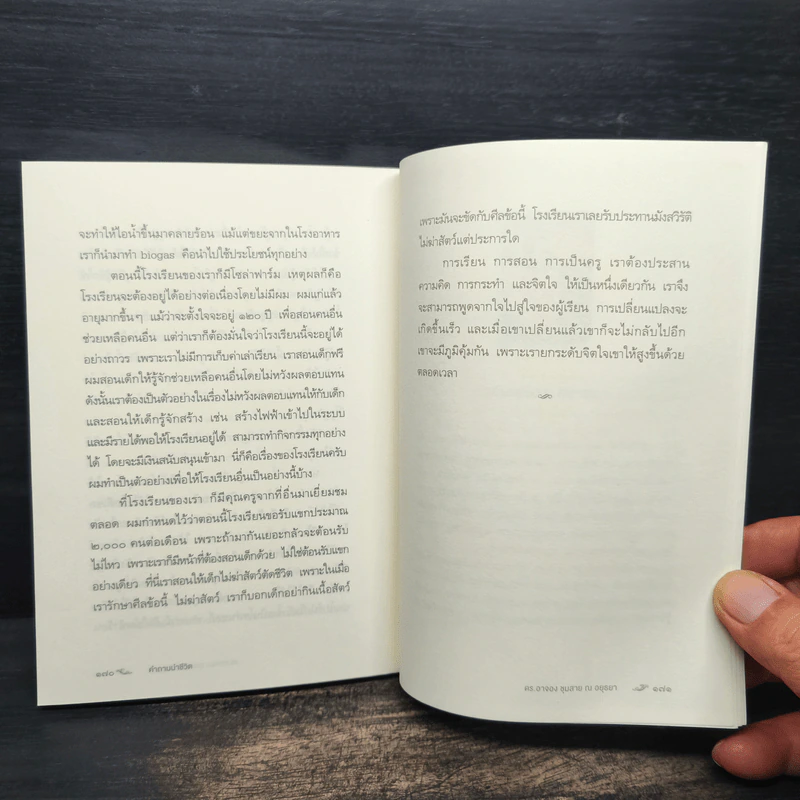 จะทำให้ไอน้ำขึ้นมาคลายร้อน แม้แต่ขยะจากในโรงอาหาร
เราก็นำมาทำ biogas คือนำไปใช้ประโยชน์ทุกอย่าง
ตอนนี้โรงเรียนของเราก็มีโซล่าฟาร์ม เหตุผลก็คือ
โรงเรียนจะต้องอยู่ได้อย่างต่อเนื่องโดยไม่มีผม ผมแก่แล้ว
อายุมากขึ้นๆ แม้ว่าจะตั้งใจจะอยู่ ๑๒๐ ปี เพื่อสอนคนอื่น
ช่วยเหลือคนอื่น แต่ว่าเราก็ต้องมั่นใจว่าโรงเรียนนี้จะอยู่ได้
อย่างถาวร เพราะเราไม่มีการเก็บค่าเล่าเรียน เราสอนเด็กฟรี
ผมสอนเด็กให้รู้จักช่วยเหลือคนอื่นโดยไม่หวังผลตอบแทน
ดังนั้นเราต้องเป็นตัวอย่างในเรื่องไม่หวังผลตอบแทนให้กับเด็ก
และสอนให้เด็กรู้จักสร้าง เช่น สร้างไฟฟ้าเข้าไปในระบบ
และมีรายได้พอให้โรงเรียนอยู่ได้ สามารถทำกิจกรรมทุกอย่าง
ได้ โดยจะมีเงินสนับสนุนเข้ามา นี่ก็คือเรื่องของโรงเรียนครับ
ผมทำเป็นตัวอย่างเพื่อให้โรงเรียนอื่นเป็นอย่างนี้บ้าง
ที่โรงเรียนของเรา ก็มีคุณครูจากที่อื่นมาเยี่ยมชม
ตลอด ผมกำหนดไว้ว่าตอนนี้โรงเรียนขอรับแขกประมาณ
๒,๐๐๐ คนต่อเดือน เพราะถ้ามากันเยอะกลัวจะต้อนรับ
ไม่ไหว เพราะเราก็มีหน้าที่ต้องสอนเด็กด้วย ไม่ใช่ต้อนรับแขก
อย่างเดียว ที่นี่เราสอนให้เด็กไม่ฆ่าสัตว์ตัดชีวิต เพราะในเมื่อ
เรารักษาศีลข้อนี้ ไม่ฆ่าสัตว์ เราก็บอกเด็กอย่ากินเนื้อสัตว์
๑๗๐ คำถามนำชีวิต
เพราะมันจะขัดกับศีลข้อนี้ โรงเรียนเราเลยรับประทานมังสวิรัติ
ไม่ฆ่าสัตว์แต่ประการใด
การเรียน การสอน การเป็นครู เราต้องประสาน
ความคิด การกระทำ และจิตใจ ให้เป็นหนึ่งเดียวกัน เราจึง
จะสามารถพูดจากใจไปสู่ใจของผู้เรียน การเปลี่ยนแปลงจะ
เกิดขึ้นเร็ว และเมื่อเขาเปลี่ยนแล้วเขาก็จะไม่กลับไปอีก
เขาจะมีภูมิคุ้มกัน เพราะเรายกระดับจิตใจเขาให้สูงขึ้นด้วย
ตลอดเวลา
ดร.อาจอง ชุมสาย ณ อยุธยา ๑๗๑